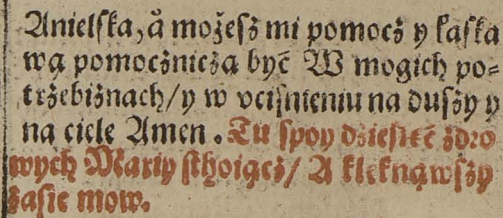 Anielſka, å możeſz mi pomocż y łaſka
wą pomocżnicżą być W mogich po⸗
trżebiżnach/ y w vciſnieniu na duſży y
na ciele Amen. Tu ſpoy dżieſięć żdro
wych Mariy ſthoigcż/ A klęknąwſży
żaſie mow.